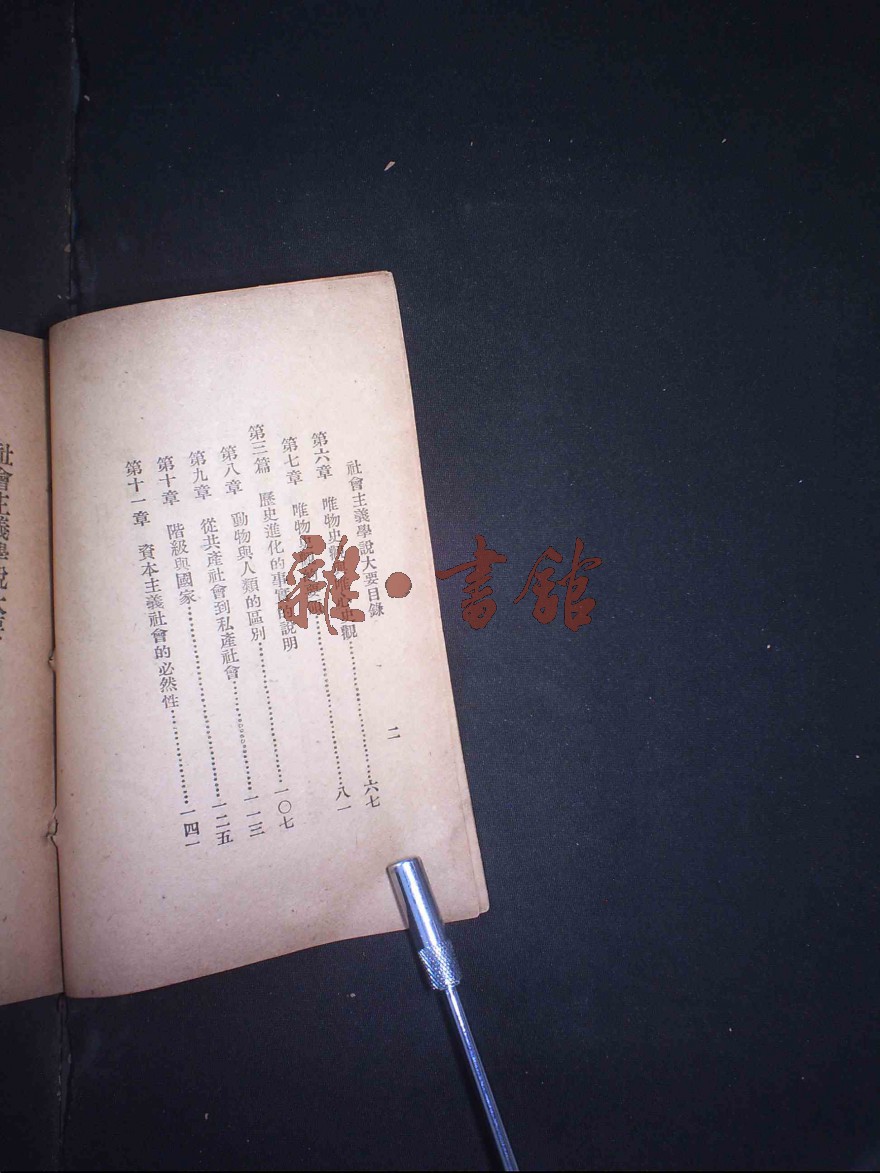 社會主義學說大要目錄
二
第六章 唯物史觀 史觀……六七
第七章 唯物……八一
第三篇 歷史進化的事實的說明
第八章 動物與人類的區別……一〇七
第九章 從共產社會到私產社會……一一三
第十章 階級與國家……一二五
第十一章 資本主義社會的必然性……一四一
社會主義學說大
雜·書館